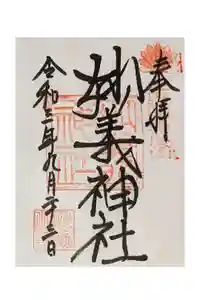 奉拝
妙義神社
令和三年九月二十三日